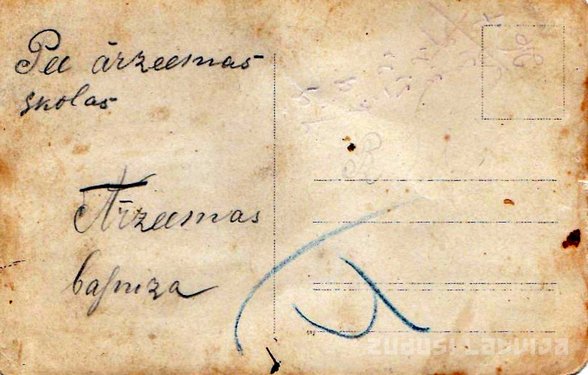 Pee ārzeemas
skolas
Ārzeemas
basniza
ZUDUSI LATVIJA